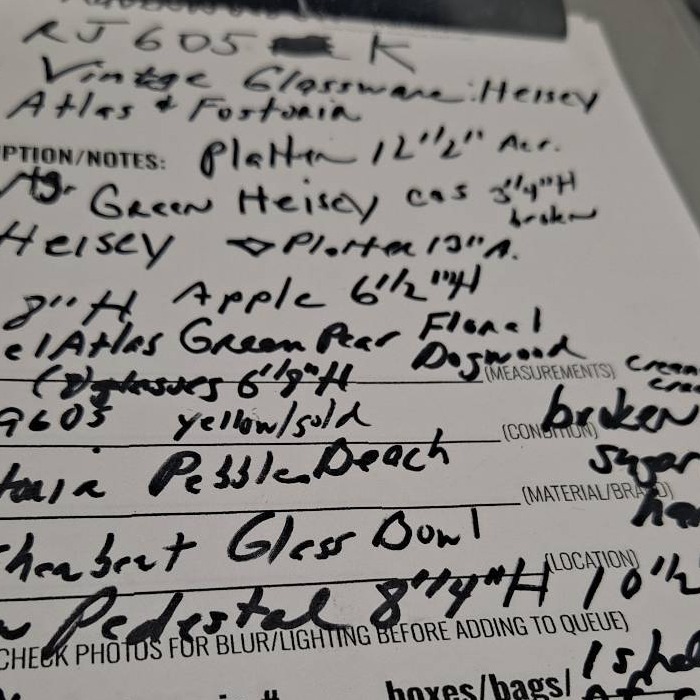 RJ605 K
Vintage Glassware: Heisey
Atlas & Fostoria
PTION/NOTES: Platter 12 1/2" Acr.
Green Heisey cas 3 1/4"H
broken
Heisey Platter 13" A.
8"H Apple 6 1/2"H
el Atlas Green Pear Floral
Dogwood
(2) glasses 6 1/8"H (MEASUREMENTS) cream
9605 yellow/gold broken
(CONDITION)
sugar
Pebble Beach
(MATERIAL/BRAND)
Glass Bowl
(LOCATION)
Pedestal 8 1/4"H 10 1/2
CHECK PHOTOS FOR BLUR/LIGHTING BEFORE ADDING TO QUEUE)
boxes/bags/ 1 shel